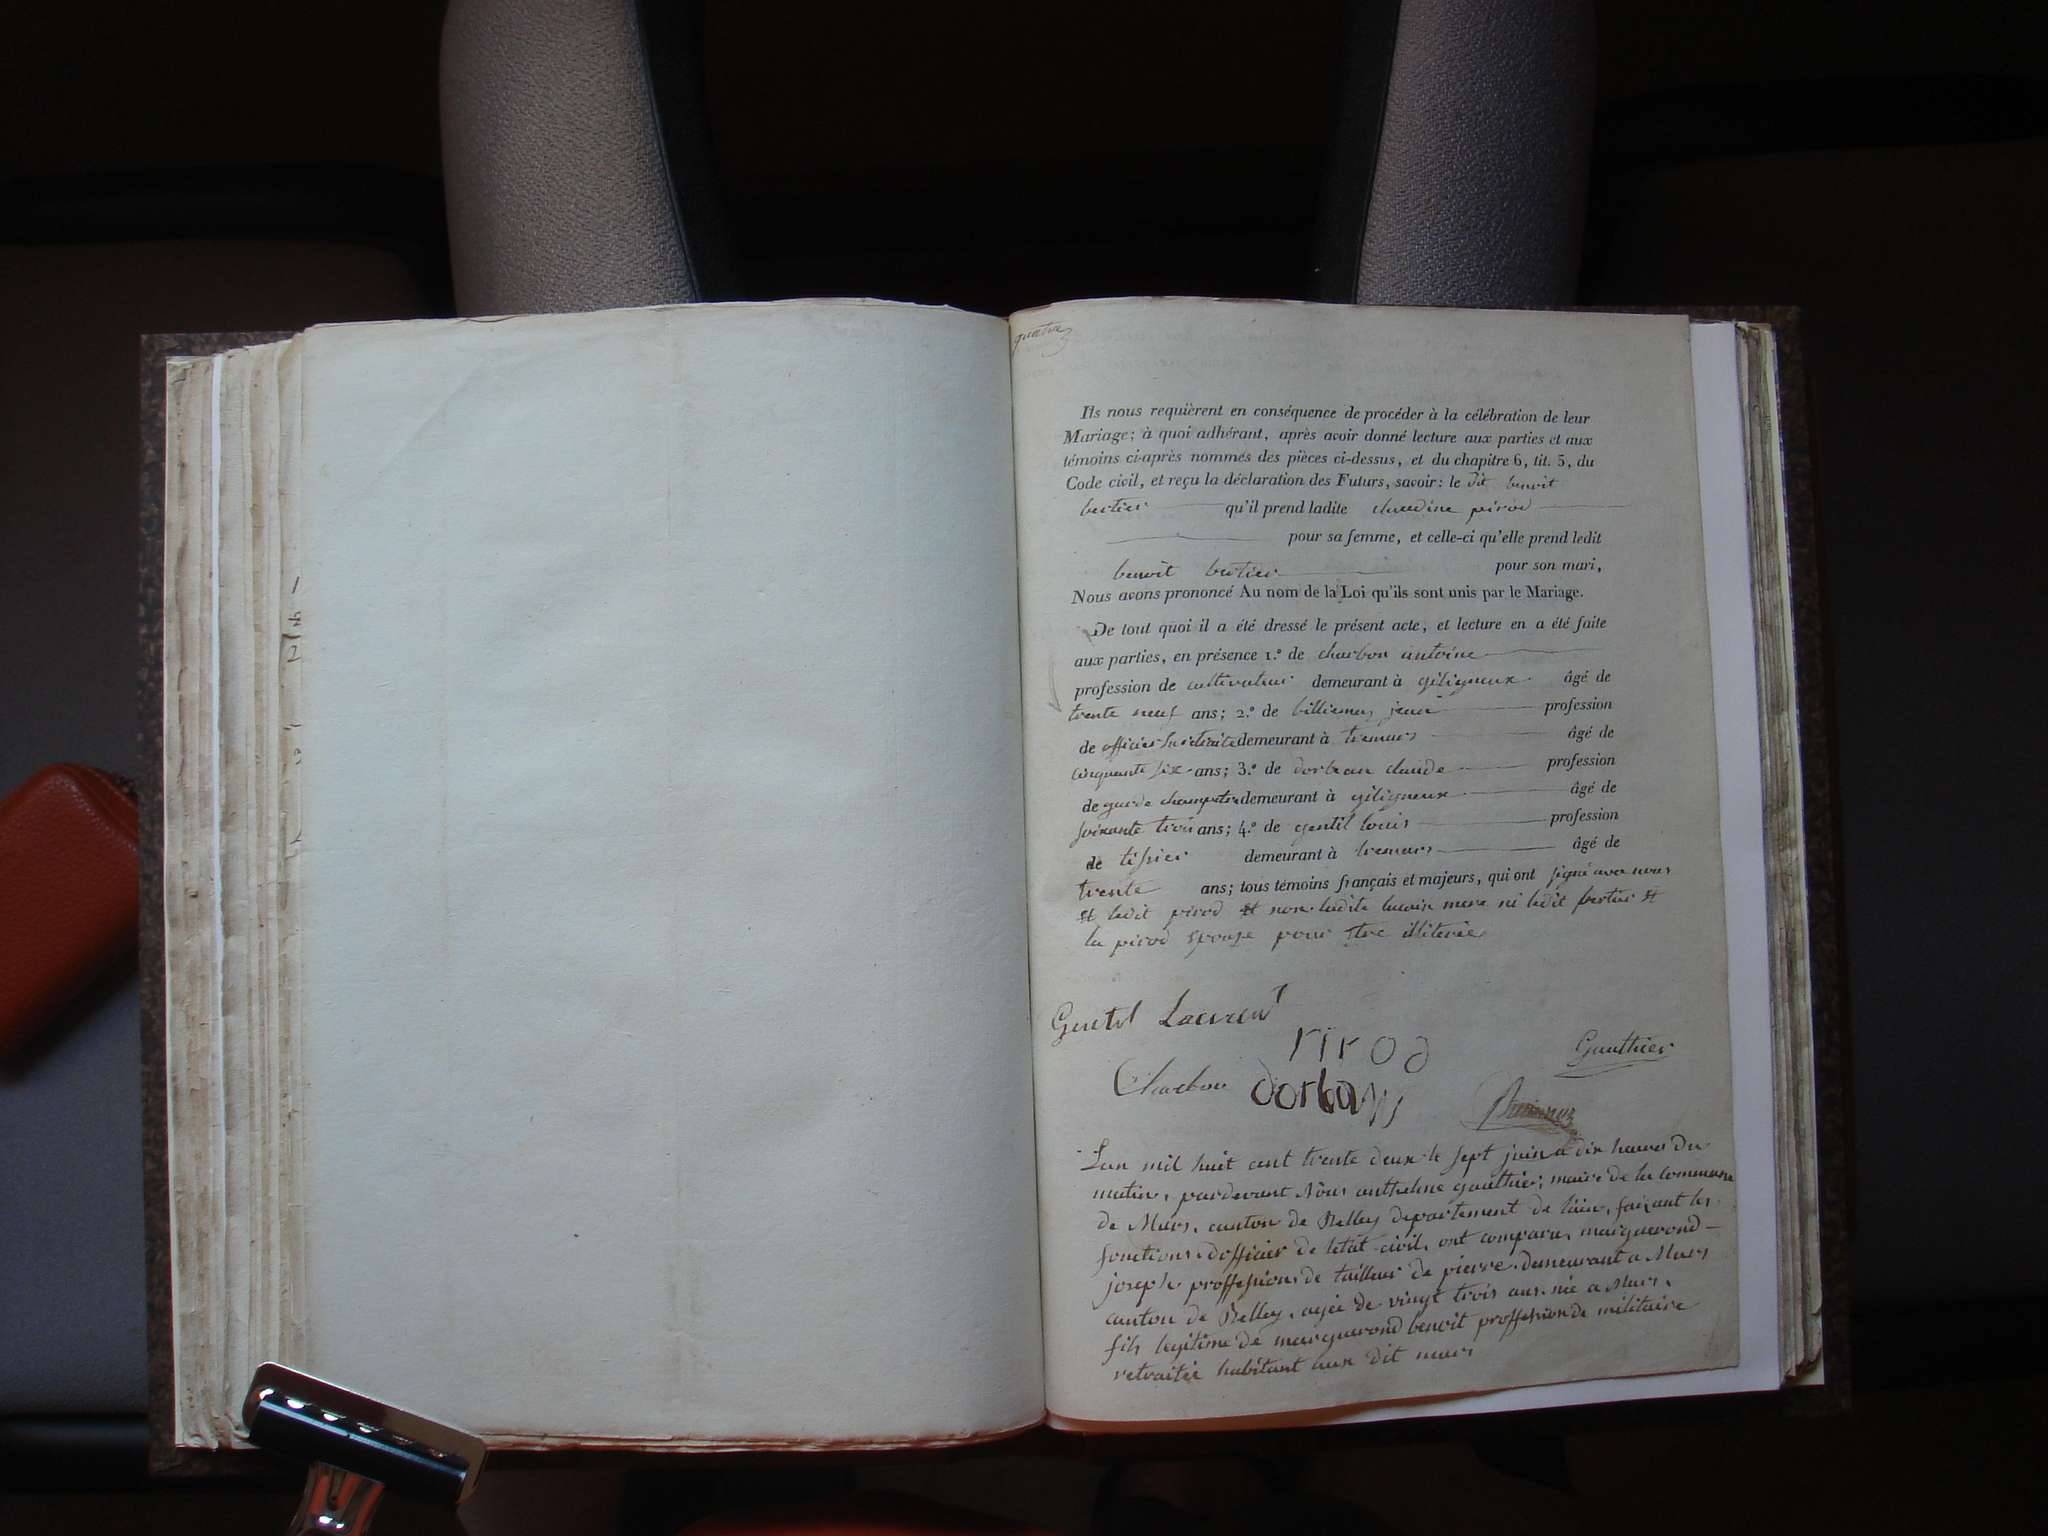 quatre
Ils nous requièrent en conséquence de procéder à la célébration de leur
Mariage; à quoi adhérant, après avoir donné lecture aux parties et aux
témoins ci-après nommés des pièces ci-dessus, et du chapitre 6, tit. 5, du
Code civil, et reçu la déclaration des Futurs, savoir: le dit benoit
bertier qu'il prend ladite claudine pirod
pour sa femme, et celle-ci qu'elle prend ledit
benoit bertier pour son mari,
Nous avons prononcé Au nom de la Loi qu'ils sont unis par le Mariage.
De tout quoi il a été dressé le présent acte, et lecture en a été faite
aux parties, en présence 1.º de charbon antoine
profession de cultivateur demeurant à géligneux âgé de
trente neuf ans; 2.º de billiemaz profession
de officier en retraite demeurant à
âgé de
cinquante six ans; 3.º de dorban claude profession
de garde champetre demeurant à géligneux âgé de
soixante trois ans; 4.º de gentil louis profession
de tissier demeurant à âgé de
trente ans; tous témoins français et majeurs, qui ont signé avec nous
et ledit pirod et non ladite mere ni ledit bertier et
la pirod epouse pour etre illiterés
Gentil Laurent
Pirod
Gauthier
Charbon dorban
Lan mil huit cent trente deux le sept juin a dix heures du
matin, pardevant Nous anthelme gauthier; maire de la commune
de Murs, canton de Belley departement de lain, faisant les
fonctions dofficier de letat civil, ont comparu, marguerond
joseph proffession de tailleur de pierre demeurant a Murs
canton de Belley, agée de vingt trois ans né a Murs,
fils legitime de marguerond benoit proffession de militaire
retraitée habitant aux dit murs